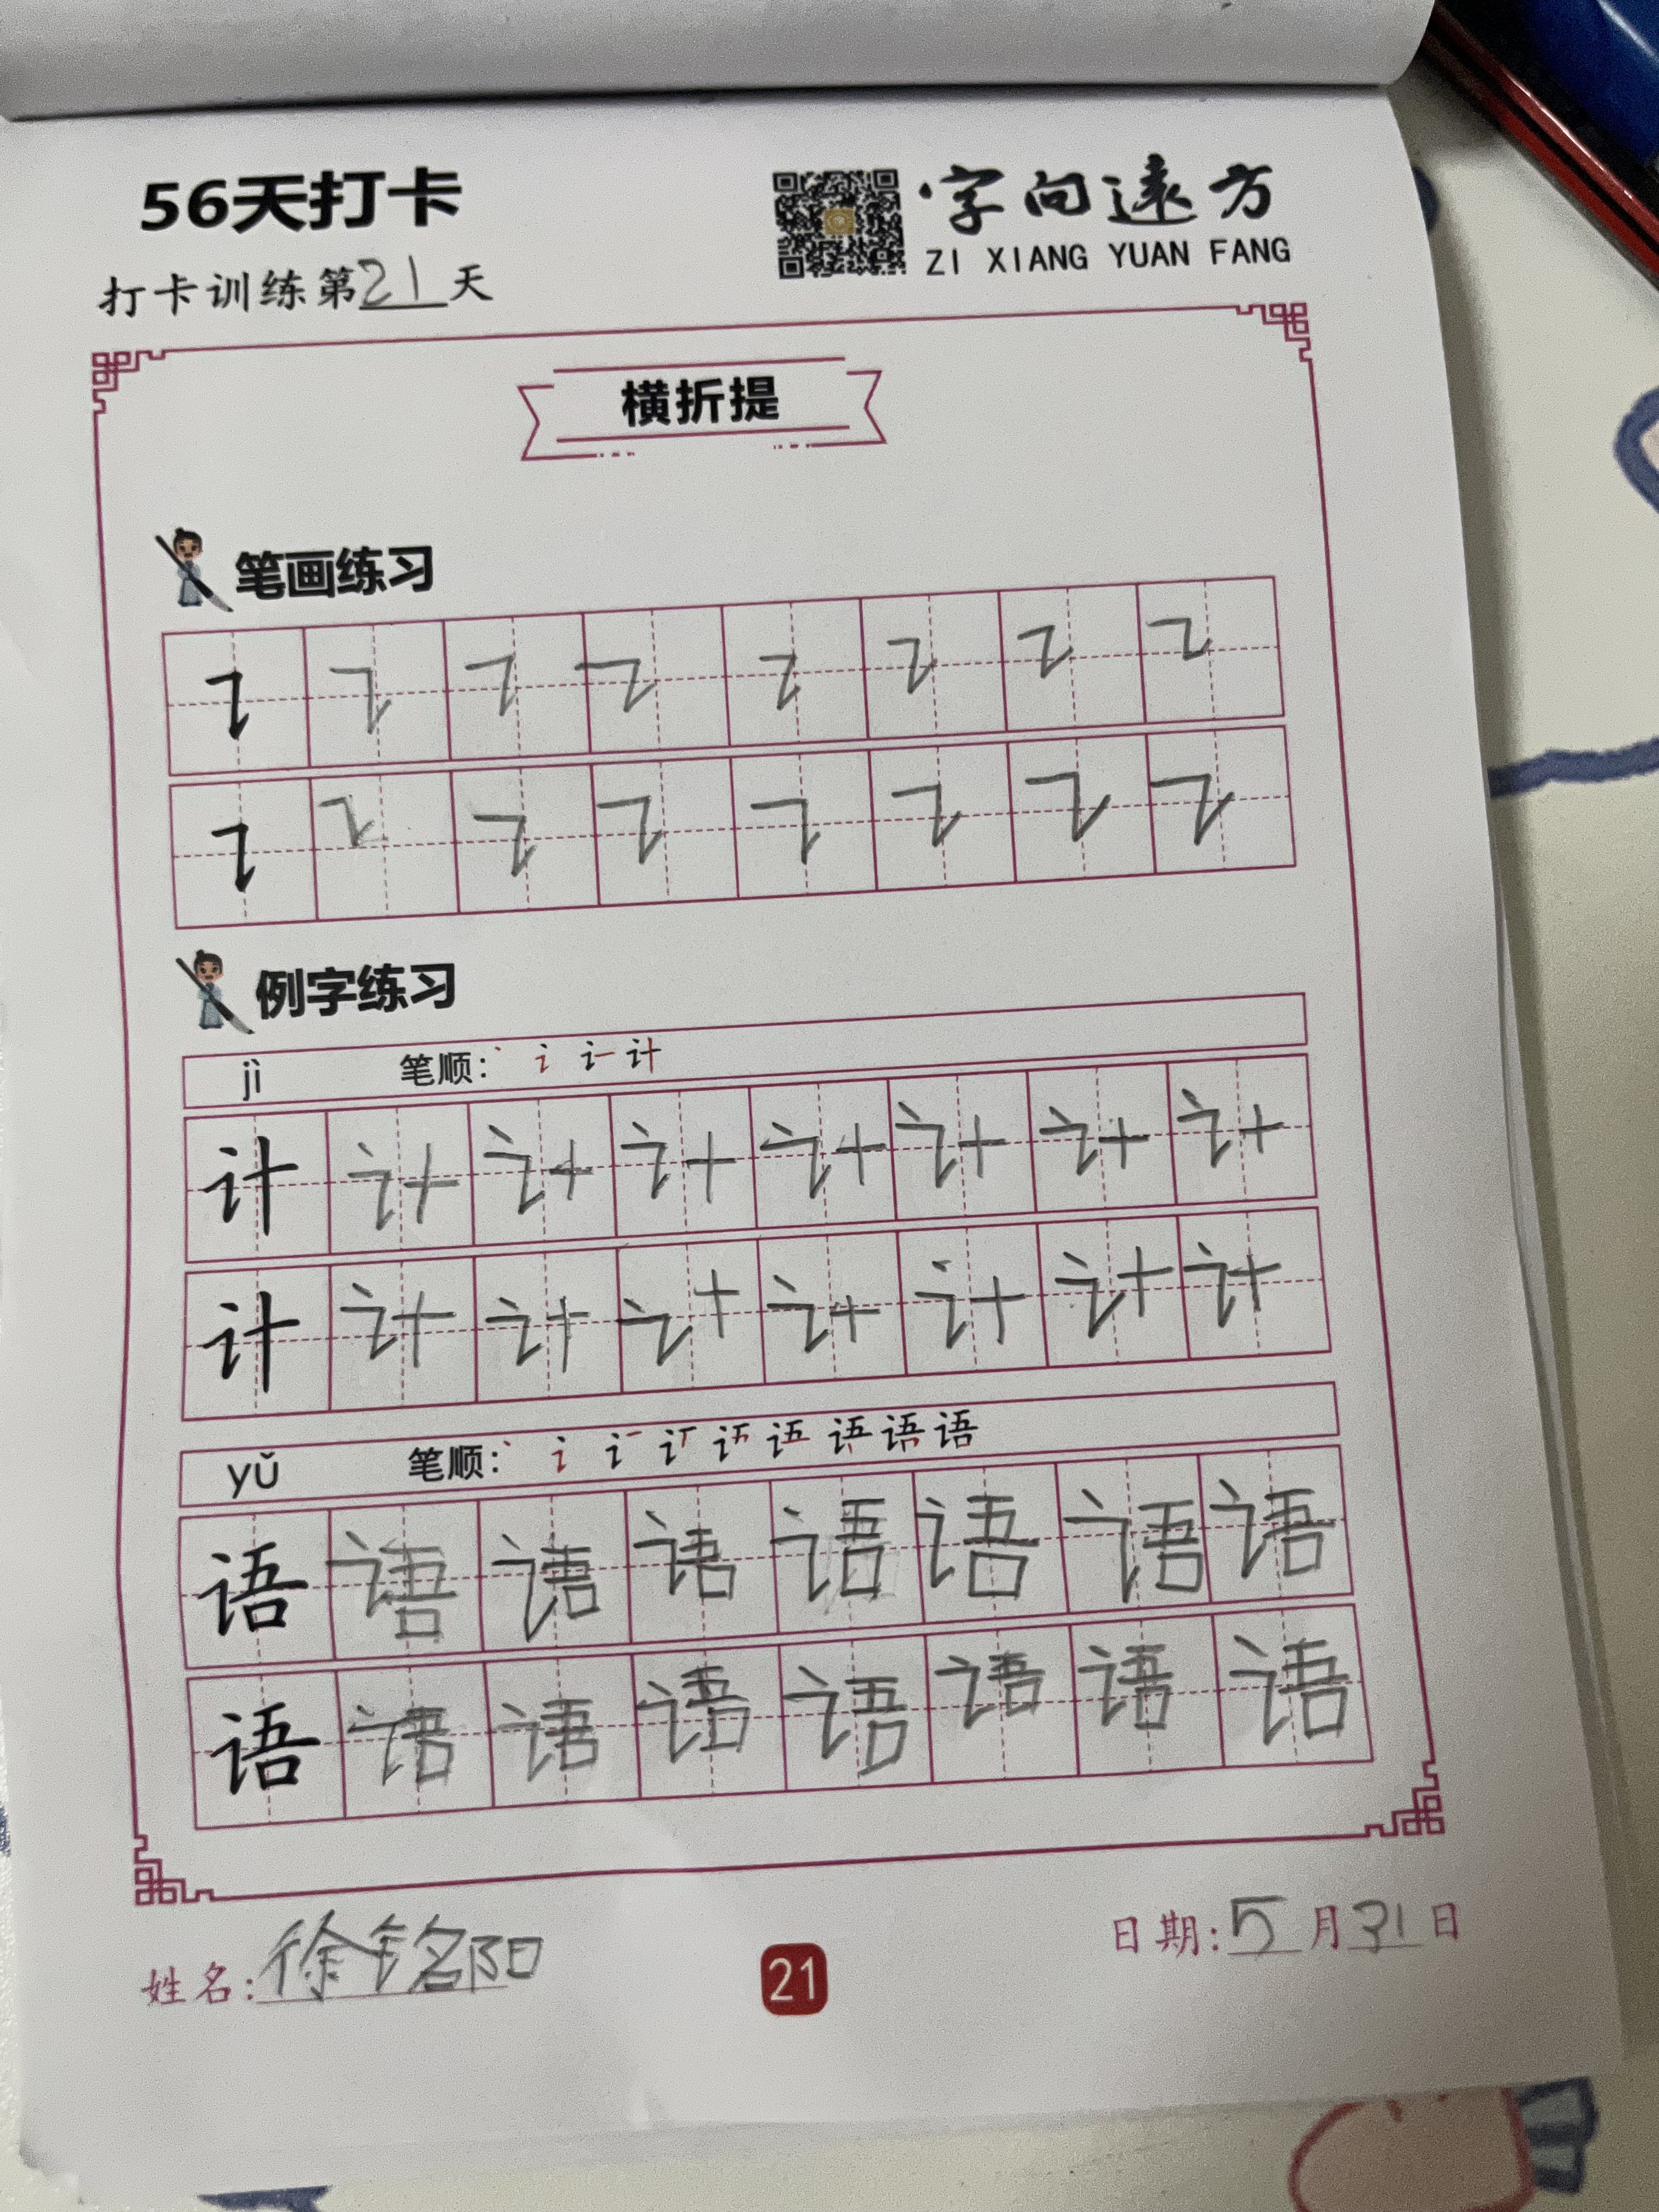 56天打卡
字向遠方
ZI XIANG YUAN FANG
打卡训练第21天
横折提
笔画练习
例字练习
jì 笔顺：
计 计 计 计 计 计 计 计
计 计 计 计 计 计 计 计
yǔ 笔顺：
语 语 语 语 语 语 语 语
语 语 语 语 语 语 语 语
姓名：徐铭阳
21
日期：5月31日